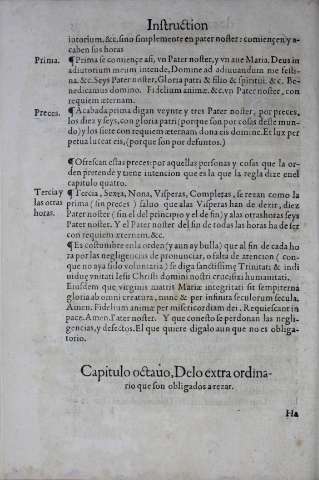 Instruction
iutorium. &c. sino simplemente en pater noster: comiençen y a-
caben sus horas
Prima. ¶ Prima se comiençe asi, vn Pater noster, y vn aue Maria. Deus in
adiutorium meum intende, Domine ad adiuuandum me festi-
na. &c. Seys Pater noster, Gloria patri & filio & spiritui. &c. Be-
nedicamus domino. Fidelium animæ &c. vn Pater noster, con
requiem æternam.
Preces. ¶ Acabada prima digan veynte y tres Pater noster, por preces,
los diez y seys, con gloria patri (porque son por cosas deste mun-
do) y los siete con requiem æternam dona eis domine. Et lux per
petua luceat eis, (porque son por defuntos.)
¶ Ofrescan estas preces: por aquellas personas y cosas que la or-
den pretende y tiene intencion que es la que la regla dize enel
capitulo quatro.
Tercia y las otras horas. ¶ Tercia, Sexta, Nona, Visperas, Completas, se rezan como la
prima (sin preces) saluo que alas Visperas han de dezir, diez
Pater noster (sin el del principio y el de fin) y alas otras horas seys
Pater noster. Y el Pater noster del fin de todas las horas ha de ser
con requiem æternam. &c.
¶ Es costumbre en la orden (y aun ay bulla) que al fin de cada ho
ra por las negligencias de pronunciar, o falta de atencion (con-
que no aya sido voluntaria) se diga sanctissimę Trinitati & indi
uiduę vnitati Iesu Christi domini nostri crucifixi humanitati.
Eiusdem que virginis matris Mariæ integritati sit sempiterna
gloria ab omni creatura, nunc & per infinita seculorum secula.
Amen. Fidelium animæ per misericordiam dei, Requiescant in
pace. Amen. Pater noster. Y que con esto se perdonan las negli-
gencias, y defectos. El que quiere digalo aun que no es obliga-
torio.
Capitulo octauo, Delo extra ordina-
rio que son obligados a rezar.
Ha